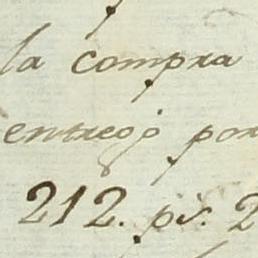 la compra
entregó por
212. ps. 2